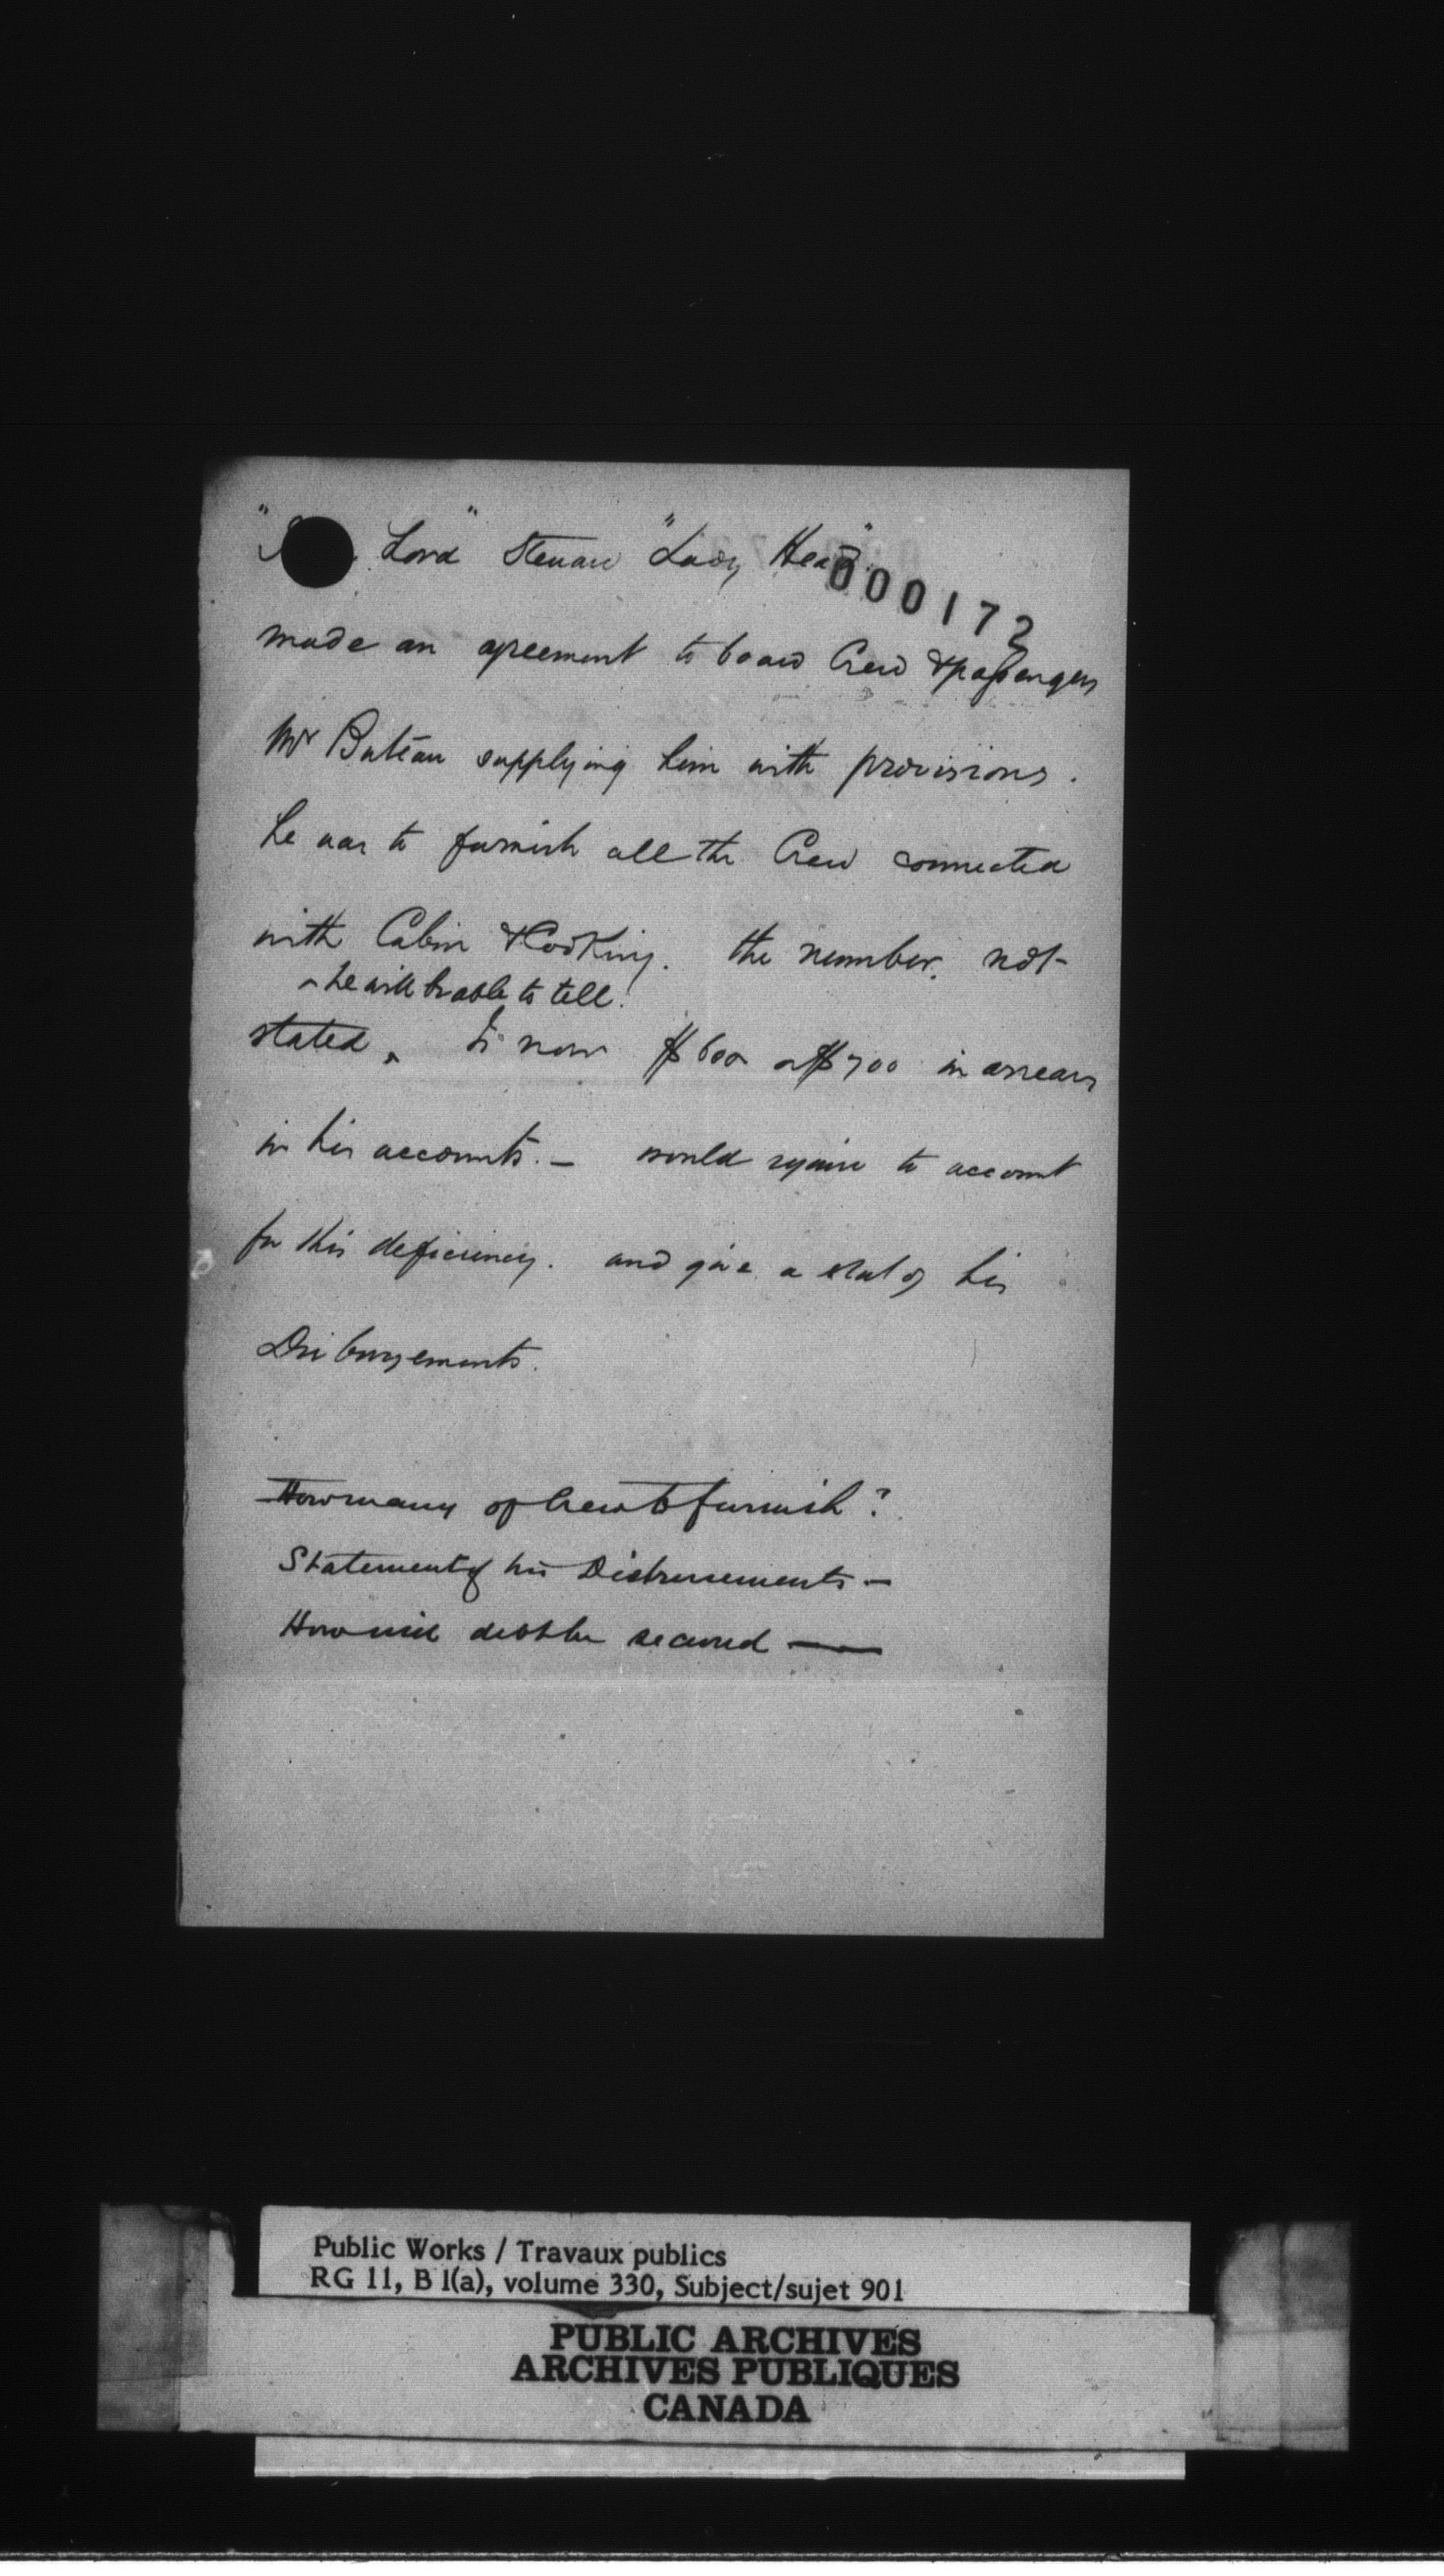 Lord" Steward "Lady Head"
000172
made an agreement to board Crew & passengers
Mr Buteau supplying him with provisions.
he was to furnish all the Crew connected
with Cabin & Cooking. the number not
he will be able to tell.
stated, Is now $600 or $700 in arrears
in his accounts. — would require to account
for this deficiency. and give a stat of his
Disbursements.
How many of Crew to furnish?
Statement of his Disbursements —
How will debt be secured —
Public Works / Travaux publics
RG 11, B 1(a), volume 330, Subject/sujet 901
PUBLIC ARCHIVES
ARCHIVES PUBLIQUES
CANADA